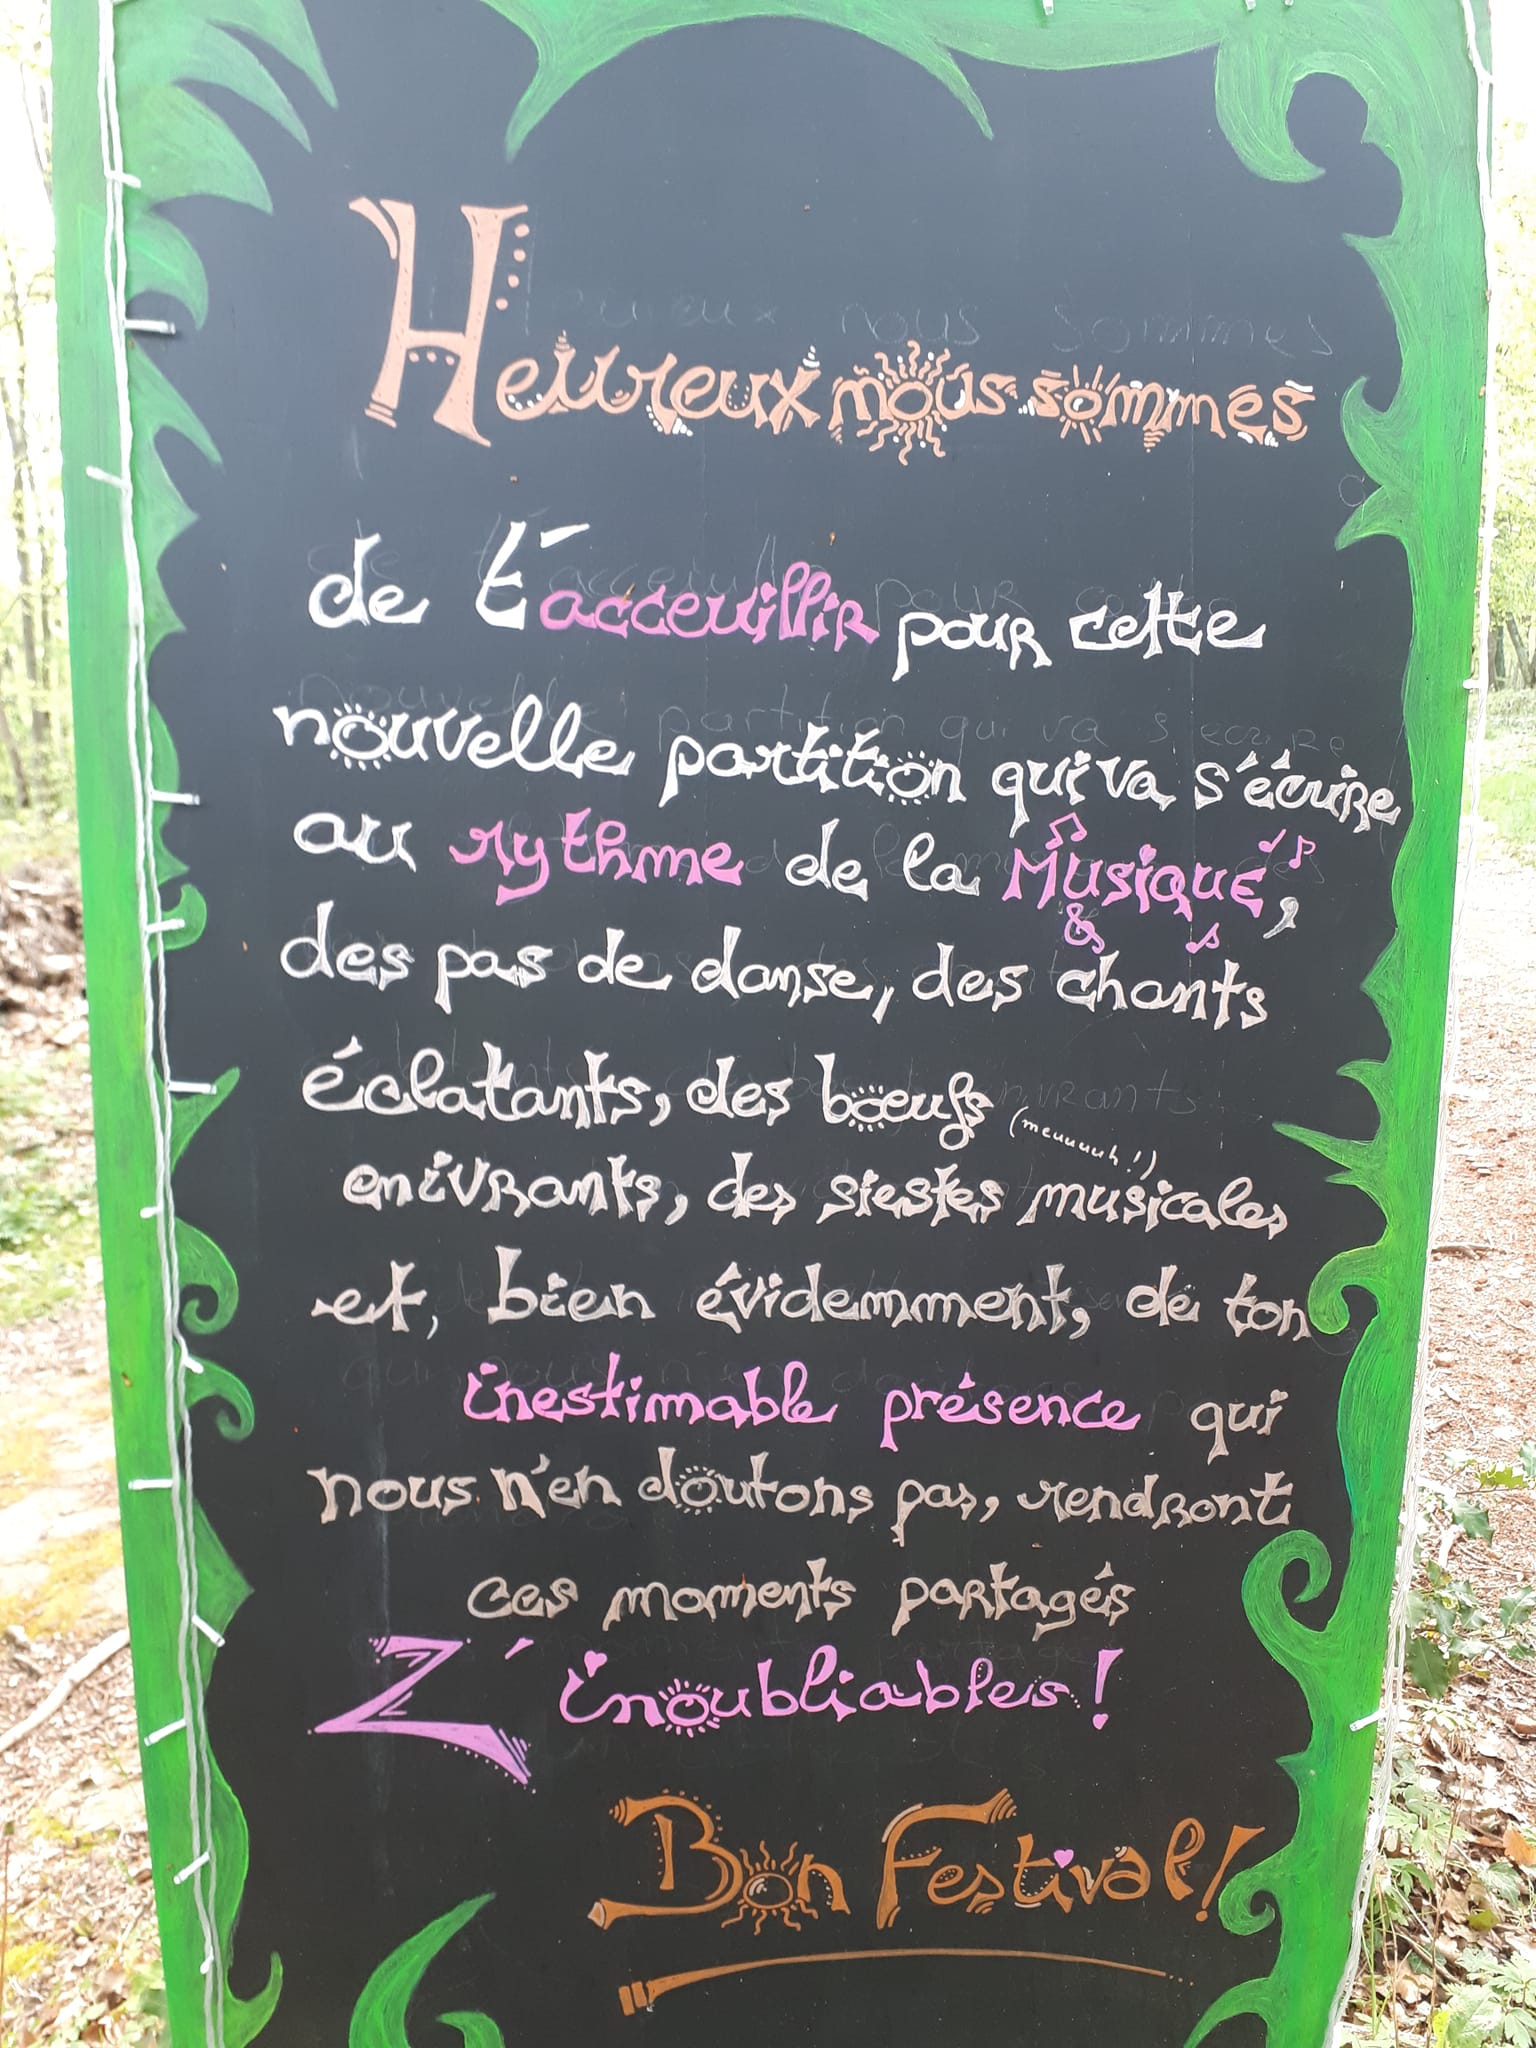 Heureux nous sommes
de t'acceuillir pour cette
nouvelle partition qui va s'écrire
au rythme de la Musique,
&
des pas de danse, des chants
éclatants, des bœufs (meuuuuh!)
enivrants, des siestes musicales
et, bien évidemment, de ton
inestimable présence qui
nous n'en doutons pas, rendront
ces moments partagés
Z'inoubliables!
Bon Festival!